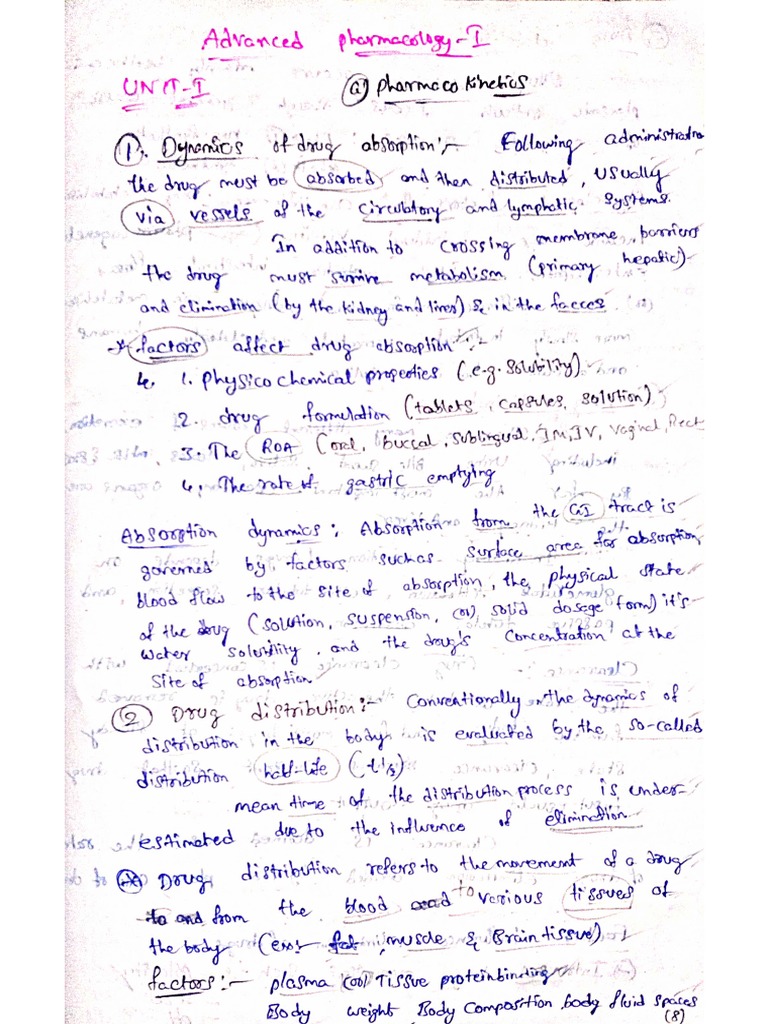 Advanced pharmacology-I
UNIT-I (a) pharmaco kinetics
1. Dynamics of drug absorption:- Following administratn
the drug must be absorbed and then distributed, usually
via vessels of the circulatory and lymphatic systems.
In addition to crossing membrane barriers
the drug must survive metabolism (primary hepatic)
and elimination (by the kidney and liver) & in the faeces
* factors affect drug absorption :-
1. Physico chemical properties (e.g. solubility)
2. drug formulation (tablets, capsules, solution)
3. The ROA (oral, buccal, sublingual, IM, IV, vaginal, Rect
4. The rate of gastric emptying
Absorption dynamics: Absorption from the GI tract is
governed by factors such as surface area for absorption
blood flow to the site of absorption, the physical state
of the drug (solution, suspension, (or) solid dosage form) it's
water solubility, and the drug's concentration at the
site of absorption
2 Drug distribution:- Conventionally the dynamics of
distribution in the body is evaluated by the so-called
distribution half-life (t½)
mean time of the distribution process is under-
estimated due to the influence of elimination
* Drug distribution refers to the movement of a drug
to and from the blood to various tissues of
the body (ex:- fat, muscle & Brain tissue)
factors:- plasma (or) Tissue protein binding
Body weight Body Composition body fluid spaces
(8)